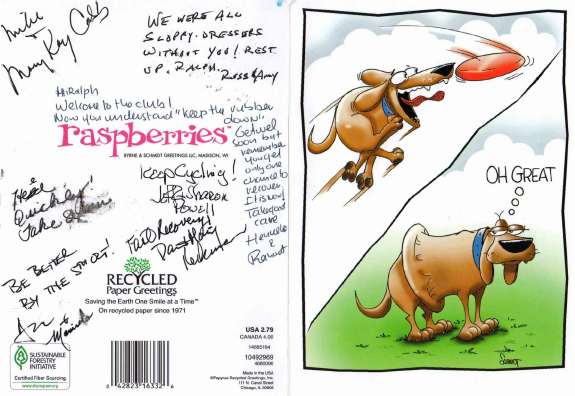 Mike
+
Mary Kay
WE WERE ALL
SLOPPY DRESSERS
WITHOUT YOU! REST
UP, RALPH.
Russ & Amy
Hi Ralph
Welcome to the club!
Now you understand "keep the rubber
down,
raspberries™
BYRNE & SCHMIDT GREETINGS LLC, MADISON, WI
Get well
soon but
remember
you get
only one
chance to
recover
it is now!
Take good
care
&
Keep Cycling!
Jeff Sharon
Powell
Heal
Quickly!
Take
Fast Recovery!
BE BETTER
BY THE
RECYCLED
Paper Greetings
Saving the Earth One Smile at a Time™
On recycled paper since 1971
USA 2.79
CANADA 4.00
10492969
©Papyrus Recycled Greetings, Inc.
111 N. Canal Street
Chicago, IL 60606
SUSTAINABLE
FORESTRY
INITIATIVE
Certified Fiber Sourcing
www.sfiprogram.org
0 42823 16332 6
OH GREAT